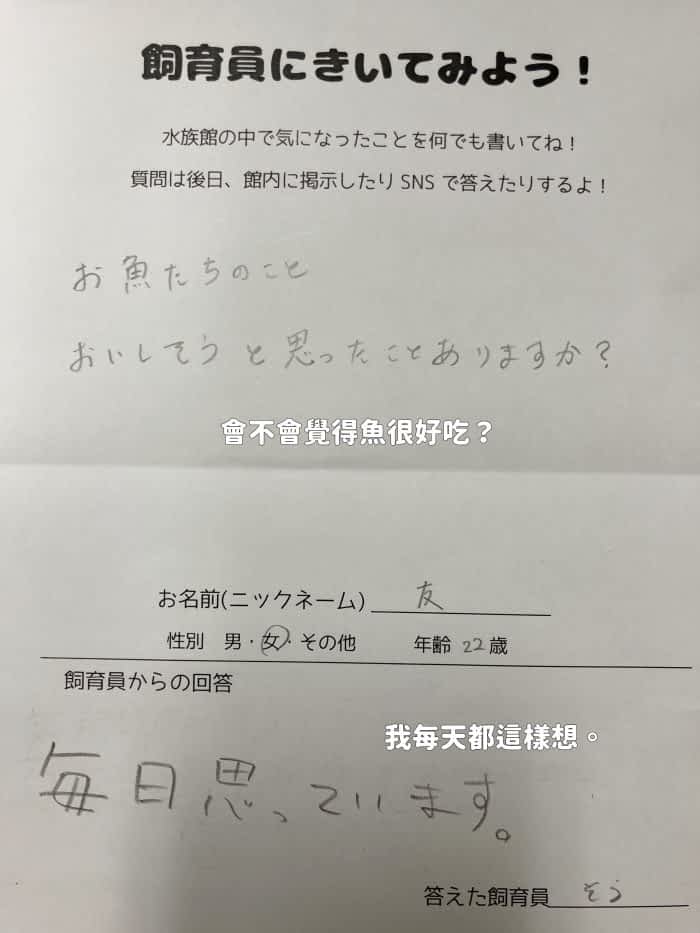 飼育員にきいてみよう！
水族館の中で気になったことを何でも書いてね！
質問は後日、館内に掲示したりSNSで答えたりするよ！
お魚たちのこと
おいしそうと思ったことありますか？
會不會覺得魚很好吃？
お名前(ニックネーム) 友
性別 男・女・その他 年齢 22歳
飼育員からの回答
我每天都這樣想。
毎日思っています。
答えた飼育員 そう